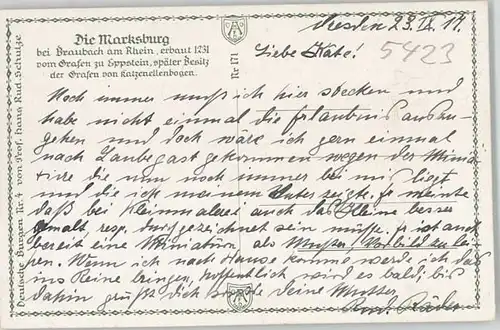 Die Marksburg
bei Braubach am Rhein, erbaut 1231
vom Grafen zu Eppstein, später Besitz
der Grafen von Katzenellenbogen.
Deutsche Burgen Nr. 4 von Prof. Hans Rud. Schulze
Nr 171
Dresden 23. IX. 17.
Liebe Käte!
5423
Noch immer muß ich hier stecken und
habe nicht einmal die Erlaubnis auszu-
gehen und doch wäre ich gern einmal
nach Laubegast gekommen wegen der Minia-
türe die nun noch immer bei mir liegt
und die ich meinem Vater zeigte. Er meinte
daß bei Kleinmalerei auch das Kleine besser
gemalt, resp. durchgezeichnet sein müsse. Er ist auch
bereit eine Miniature als Muster Vorbild zu lei-
hen. Wenn ich nach Hause komme werde ich das
ins Reine bringen, hoffentlich wird es bald, bis
dahin grüßt Dich deine Mutter